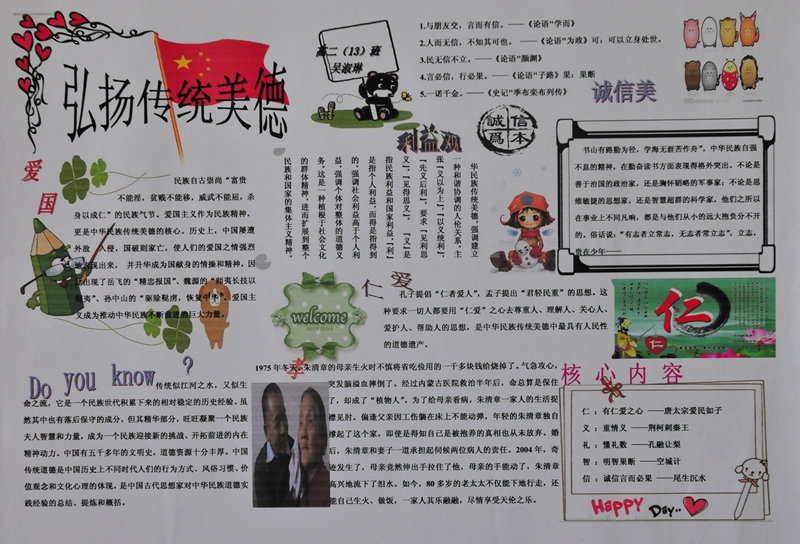 弘扬传统美德
高二（13）班
吴淑琳
1.与朋友交，言而有信。——《论语"学而》
2.人而无信，不知其可也。 ——《论语"为政》可：可以立身处世。
3.民无信不立。——《论语"颜渊》
4.言必信，行必果。——《论语"子路》果：果断
5.一诺千金。——《史记"季布栾布列传》
诚信美
誠信
爲本
爱国
民族自古崇尚“富贵
不能淫，贫贱不能移，威武不能屈，杀
身以成仁”的民族气节。爱国主义作为民族精神，
更是中华民族传统美德的核心。历史上，中国屡遭
外敌 入侵，国破则家亡，使人们的爱国之情强烈
地发现出来， 并升华成为国献身的情操和精神，因
出现了岳飞的“精忠报国”、魏源的“师夷长技以
制夷”、孙中山的“驱除鞑虏，恢复中华”。爱国主
义成为推动中华民族不断前进的巨大力量。
利益观
华民族传统美德，强调建立
一种和谐协调的人伦关系。主
张“义以为上”，“以义统利”，
“先义后利”，要求“见利思
义”，“见得思义”。“义”是
指民族利益和国家利益，“利”
是指个人利益，而得是指得到
的，强调社会利益高于个人利
益，强调个体对整体的道德义
务，这是一种植根于社会文化
的群体精神，进而扩展到整个
民族和国家的集体主义精神。
书山有路勤为径，学海无涯苦作舟”。中华民族自强
不息的精神，在勤奋读书方面表现得格外突出。不论是
善于治国的政治家，还是胸怀韬略的军事家；不论是思
维敏捷的思想家，还是智慧超群的科学家，他们之所以
在事业上不同凡响，都是与他们从小的远大抱负分不开
的。俗话说：“有志者立常志，无志者常立志”。立志，
贵在少年——
仁爱
孔子提倡“仁者爱人”，孟子提出“君轻民重”的思想。这
种要求一切人都要用“仁爱”之心去尊重人、理解人、关心人、
爱护人、帮助人的思想，是中华民族传统美德中最具有人民性
的道德遗产。
welcome
仁
仁
Do you know ？
传统似江河之水，又似生
命之流，它是一个民族世代积累下来的相对稳定的历史经验，虽
然其中也有落后保守的成分，但其精华部分，旺旺凝聚一个民族
夫人智慧和力量，成为一个民族迎接新的挑战、开拓前进的内在
精神动力。中国有五千多年的文明史，道德资源十分丰厚。中国
传统道德是中国历史上不同时代人们的行为方式、风俗习惯、价
值观念和文化心理的体现，是中国古代思想家对中华民族道德实
践经验的总结、提炼和概括。
孝
1975年冬天，朱清章的母亲生火时不慎将省吃俭用的一千多块钱给烧掉了。气急攻心，
突发脑溢血摔倒了。经过内蒙古医院救治半年后，命总算是保住
了，却成了“植物人”。为了给母亲看病，朱清章一家人的生活捉
襟见肘。偏逢父亲因工伤躺在床上不能动弹，年轻的朱清章独自
撑起了这个家，即使是得知自己是被抱养的真相也从未放弃。婚
后，朱清章和妻子一道承担起伺候两位病人的责任。2004 年，奇
迹发生了，母亲竟然伸出手拉住了他，母亲的手能动了，朱清章
高兴地流下了泪水。如今，80 多岁的老太太不仅能下地行走，还
能自己生火、做饭，一家人其乐融融，尽情享受天伦之乐。
核心内容
仁 ：有仁爱之心 ——唐太宗爱民如子
义 ：重情义 ——荆柯刺秦王
礼 ：懂礼数 ——孔融让梨
智 ：明智果断 ——空城计
信 ：诚信言而必果 ——尾生沉水
Happy Day..